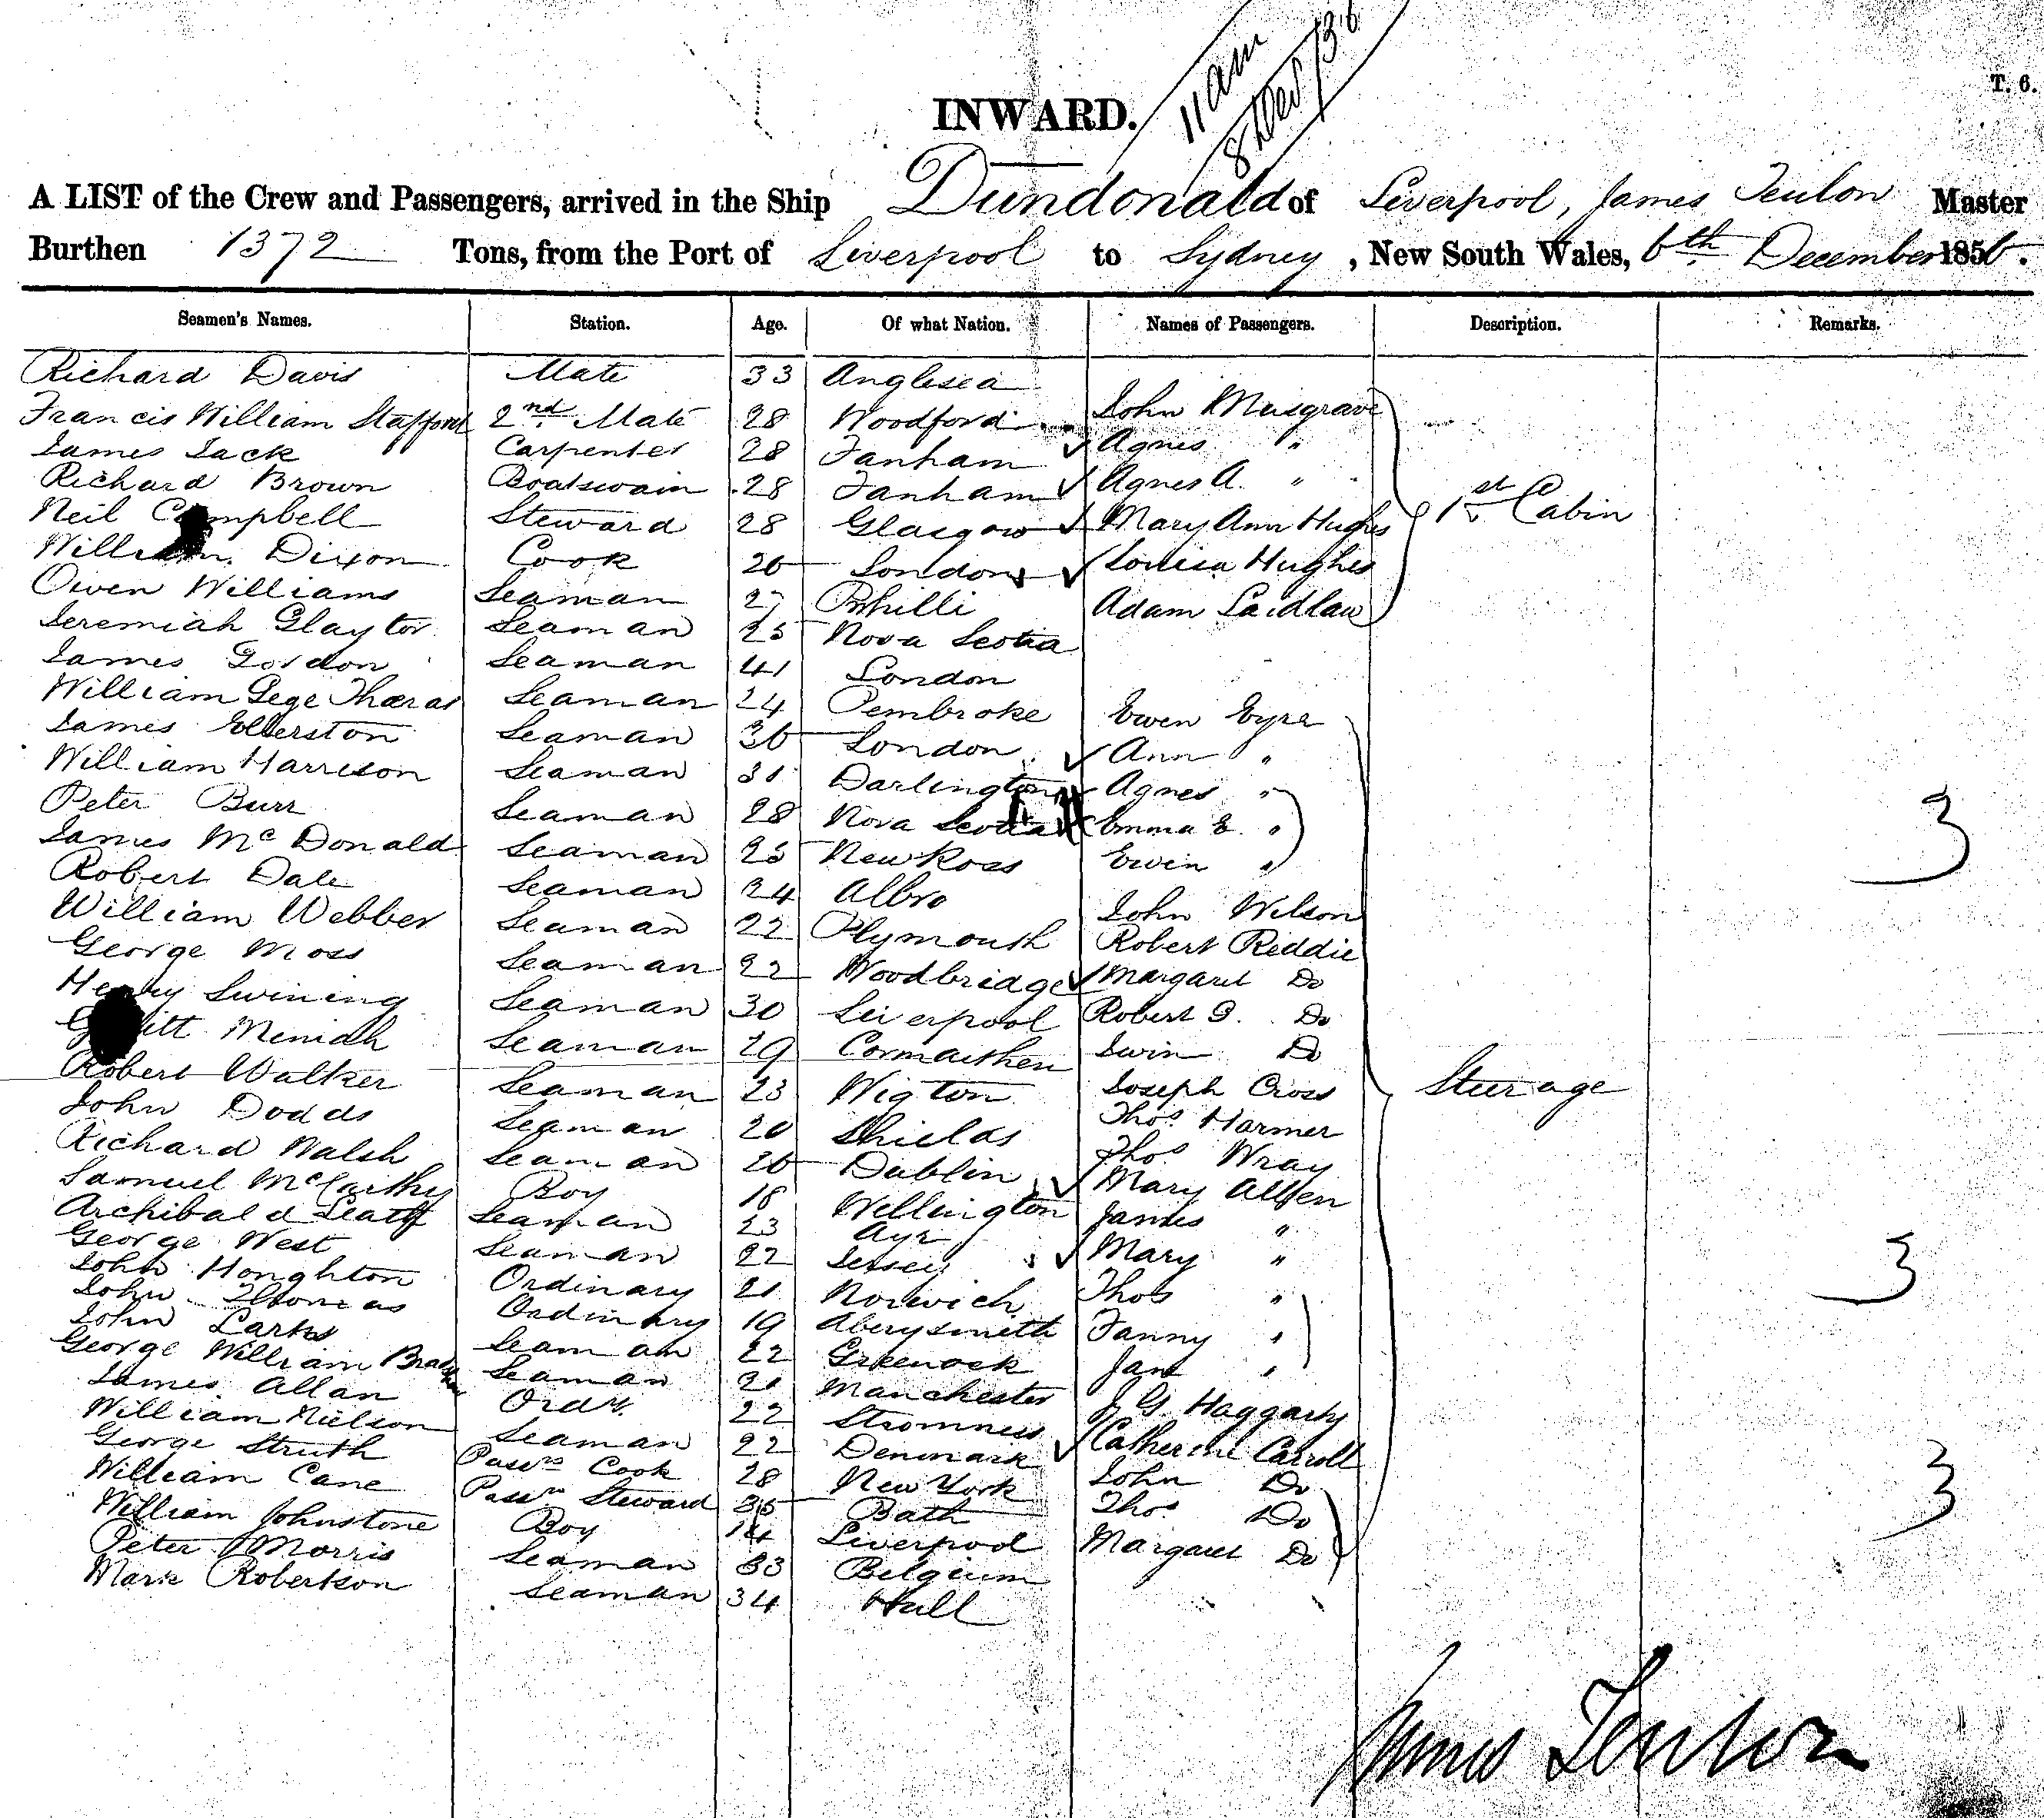 11 am
8 Dec /56
T. 6.
INWARD.
A LIST of the Crew and Passengers, arrived in the Ship Dundonald of Liverpool, James Teulon Master
Burthen 1372 Tons, from the Port of Liverpool to Sydney, New South Wales, 6th December 1856.
Seamen's Names. Station. Age. Of what Nation. Names of Passengers. Description. Remarks.
Richard Davis Mate 33 Anglesea
Francis William Stafford 2nd Mate 28 Woodford John Musgrave
James Jack Carpenter 28 Fanham ✓ Agnes "
Richard Brown Boatswain 28 Fanham ✓ Agnes A. "
Neil Campbell Steward 28 Glasgow ✓ Mary Ann Hughes 1st Cabin
William Dixon Cook 26 London ✓ Louisa Hughes
Owen Williams Seaman 27 Adam Laidlaw
Jeremiah Glaytor Seaman 25 Nova Scotia
James Gordon Seaman 41 London
William Seaman 24 Pembroke Ewen Eyre
James Ellerston Seaman 36 London ✓ Ann "
William Harrison Seaman 31 Darlington Agnes "
Peter Burr Seaman 28 Nova Scotia Emma E. " 3
James McDonald Seaman 25 New Ross Ewin "
Robert Dale Seaman 24 Albro John Wilson
William Webber Seaman 22 Plymouth Robert Reddie
George Moss Seaman 22 Woodbridge ✓ Margaret Do
Henry Swining Seaman 30 Liverpool Robert G. Do
Meniah Seaman 29 Carmarthen Swin Do
Robert Walker Seaman 23 Wigton Joseph Cross Steerage
John Dodds Seaman 20 Shields Thos. Harmer
Richard Walsh Seaman 26 Dublin Thos Wray
Samuel McCarthy Boy 18 Wellington ✓ Mary Allen
Archibald Seaman 23 Ayr James "
George West Seaman 22 Jersey ✓ Mary " 3
John Honghton Ordinary 21 Norwich Thos "
John Thomas Ordinary 19 Aberysmith Fanny "
John Larks Seaman 22 Greenock Jane "
George William Seaman 21 Manchester J G Haggarty
James Allan Ordy. 22 Stromness ✓ Catherine Carroll
William Nielson Seaman 22 Denmark John Do
George Struth Passrs Cook 28 New York Thos Do 3
William Cane Passrs Steward 35 Bath Margaret Do
William Johnstone Boy 14 Liverpool
Peter Morris Seaman 33 Belgium
Mark Robertson Seaman 34 Hull
James Teulon